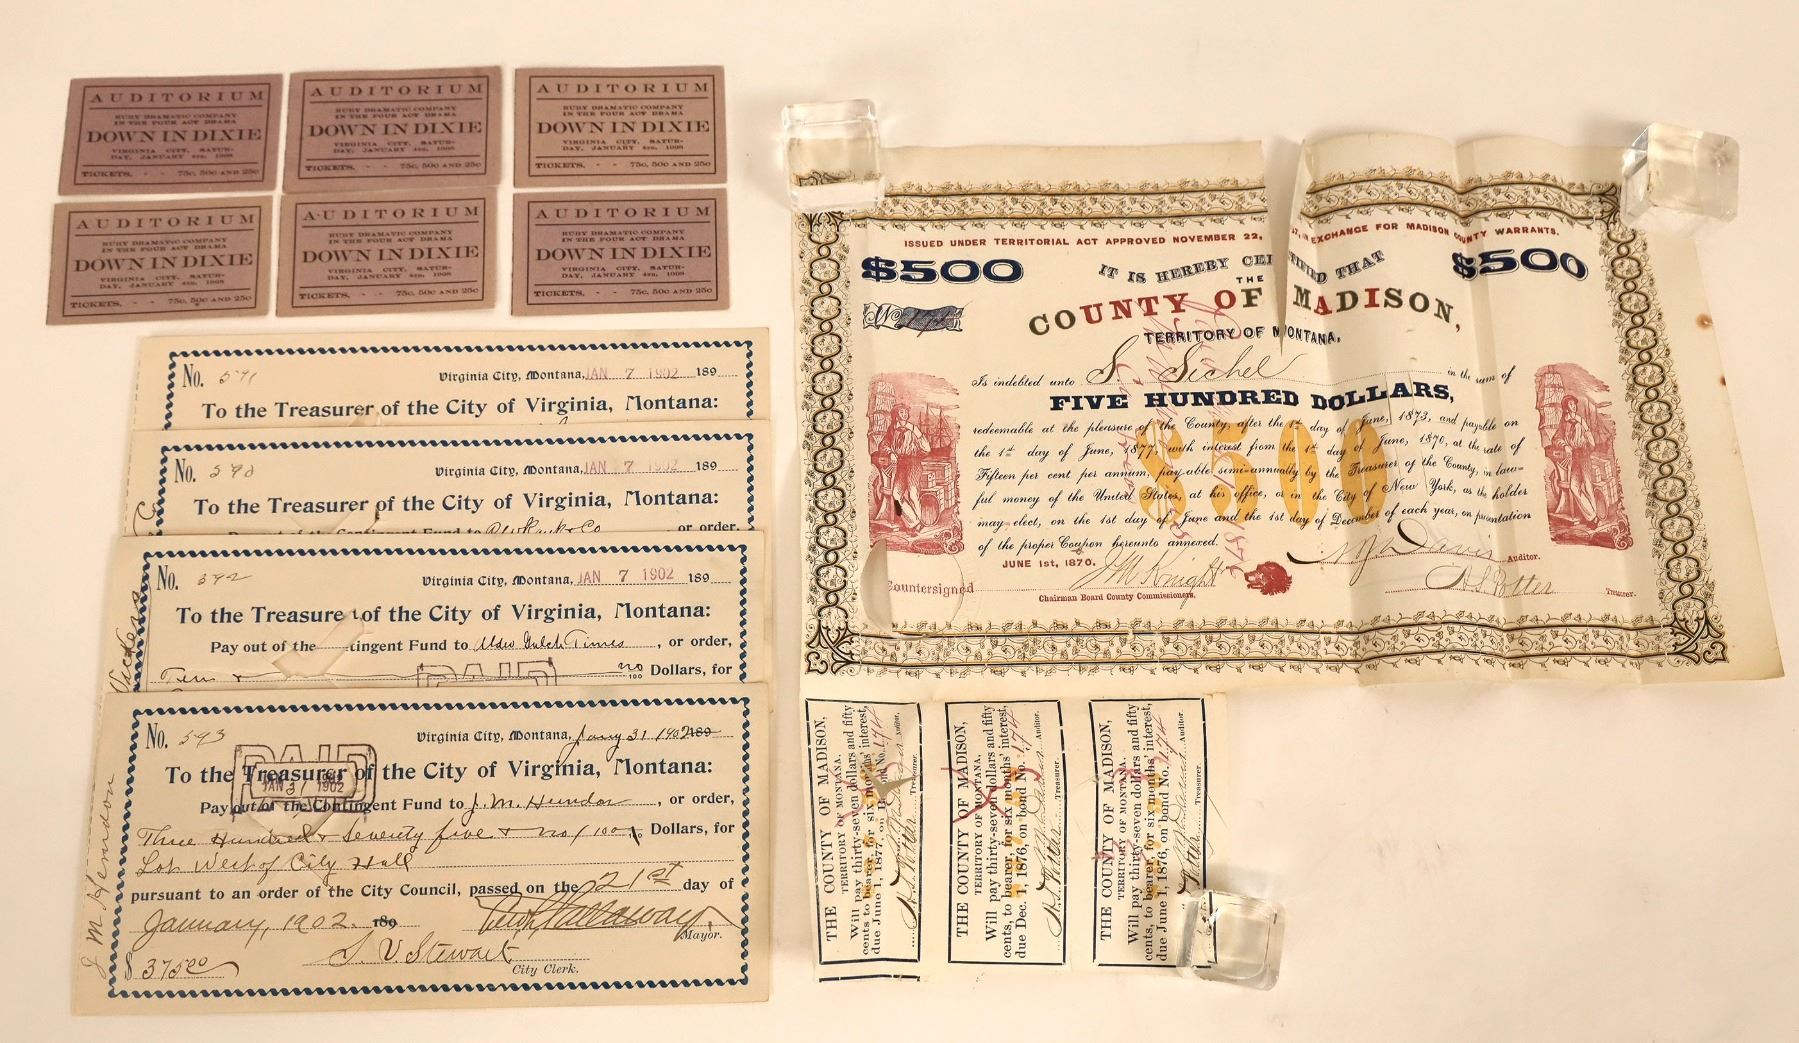 AUDITORIUM
RUBY DRAMATIC COMPANY
IN THE FOUR ACT DRAMA
DOWN IN DIXIE
VIRGINIA CITY, SATUR-
DAY, JANUARY 4TH, 1908
TICKETS, - - 75C, 50C AND 25C
AUDITORIUM
RUBY DRAMATIC COMPANY
IN THE FOUR ACT DRAMA
DOWN IN DIXIE
VIRGINIA CITY, SATUR-
DAY, JANUARY 4TH, 1908
TICKETS, - - 75C, 50C AND 25C
AUDITORIUM
RUBY DRAMATIC COMPANY
IN THE FOUR ACT DRAMA
DOWN IN DIXIE
VIRGINIA CITY, SATUR-
DAY, JANUARY 4TH, 1908
TICKETS, - - 75C, 50C AND 25C
AUDITORIUM
RUBY DRAMATIC COMPANY
IN THE FOUR ACT DRAMA
DOWN IN DIXIE
VIRGINIA CITY, SATUR-
DAY, JANUARY 4TH, 1908
TICKETS, - - 75C, 50C AND 25C
AUDITORIUM
RUBY DRAMATIC COMPANY
IN THE FOUR ACT DRAMA
DOWN IN DIXIE
VIRGINIA CITY, SATUR-
DAY, JANUARY 4TH, 1908
TICKETS, - - 75C, 50C AND 25C
AUDITORIUM
RUBY DRAMATIC COMPANY
IN THE FOUR ACT DRAMA
DOWN IN DIXIE
VIRGINIA CITY, SATUR-
DAY, JANUARY 4TH, 1908
TICKETS, - - 75C, 50C AND 25C
No. 591 Virginia City, Montana, JAN 7 1902 189
To the Treasurer of the City of Virginia, Montana:
No. 590 Virginia City, Montana, JAN 7 1902 189
To the Treasurer of the City of Virginia, Montana:
Contingent Fund to or order,
No. 592 Virginia City, Montana, JAN 7 1902 189
To the Treasurer of the City of Virginia, Montana:
Pay out of the tingent Fund to Alder Gulch Times, or order,
Ten & no/100 Dollars, for
PAID
No. 593 Virginia City, Montana, Jany 31 1902 189
PAID
JAN 31 1902
To the Treasurer of the City of Virginia, Montana:
Pay out of the Contingent Fund to J. M. Hendon, or order,
Three Hundred & Seventy five & no/100 Dollars, for
Lot West of City Hall
pursuant to an order of the City Council, passed on the 21st day of
January, 1902. 189
Callaway
Mayor.
$375.00 S. V. Stewart
City Clerk.
J M Hendon
ISSUED UNDER TERRITORIAL ACT APPROVED NOVEMBER 22, IN EXCHANGE FOR MADISON COUNTY WARRANTS.
$500 IT IS HEREBY CERTIFIED THAT $500
THE
No
COUNTY OF MADISON,
TERRITORY OF MONTANA,
Is indebted unto S. Sichel in the sum of
FIVE HUNDRED DOLLARS,
redeemable at the pleasure of the County, after the 1st day of June, 1873, and payable on
the 1st day of June, 1877, with interest from the 1st day of June, 1870, at the rate of
Fifteen per cent per annum, payable semi-annually by the Treasurer of the County, in law-
ful money of the United States, at his office, or in the City of New York, as the holder
may elect, on the 1st day of June and the 1st day of December of each year, on presentation
of the proper Coupon hereunto annexed.
$500
JUNE 1st, 1870.
Davis Auditor.
Countersigned J M Knight
Chairman Board County Commissioners.
H. S. Potter Treasurer.
THE COUNTY OF MADISON,
TERRITORY OF MONTANA,
Will pay thirty-seven dollars and fifty
cents, to bearer, for six months' interest,
due June 1, 1877, on Bond No. 194
Auditor.
H. S. Potter Treasurer.
THE COUNTY OF MADISON,
TERRITORY OF MONTANA,
Will pay thirty-seven dollars and fifty
cents, to bearer, for six months' interest,
due Dec. 1, 1876, on bond No. 194
Auditor.
H. S. Potter Treasurer.
THE COUNTY OF MADISON,
TERRITORY OF MONTANA,
Will pay thirty-seven dollars and fifty
cents, to bearer, for six months' interest,
due June 1, 1876, on bond No. 194
Auditor.
Potter Treasurer.